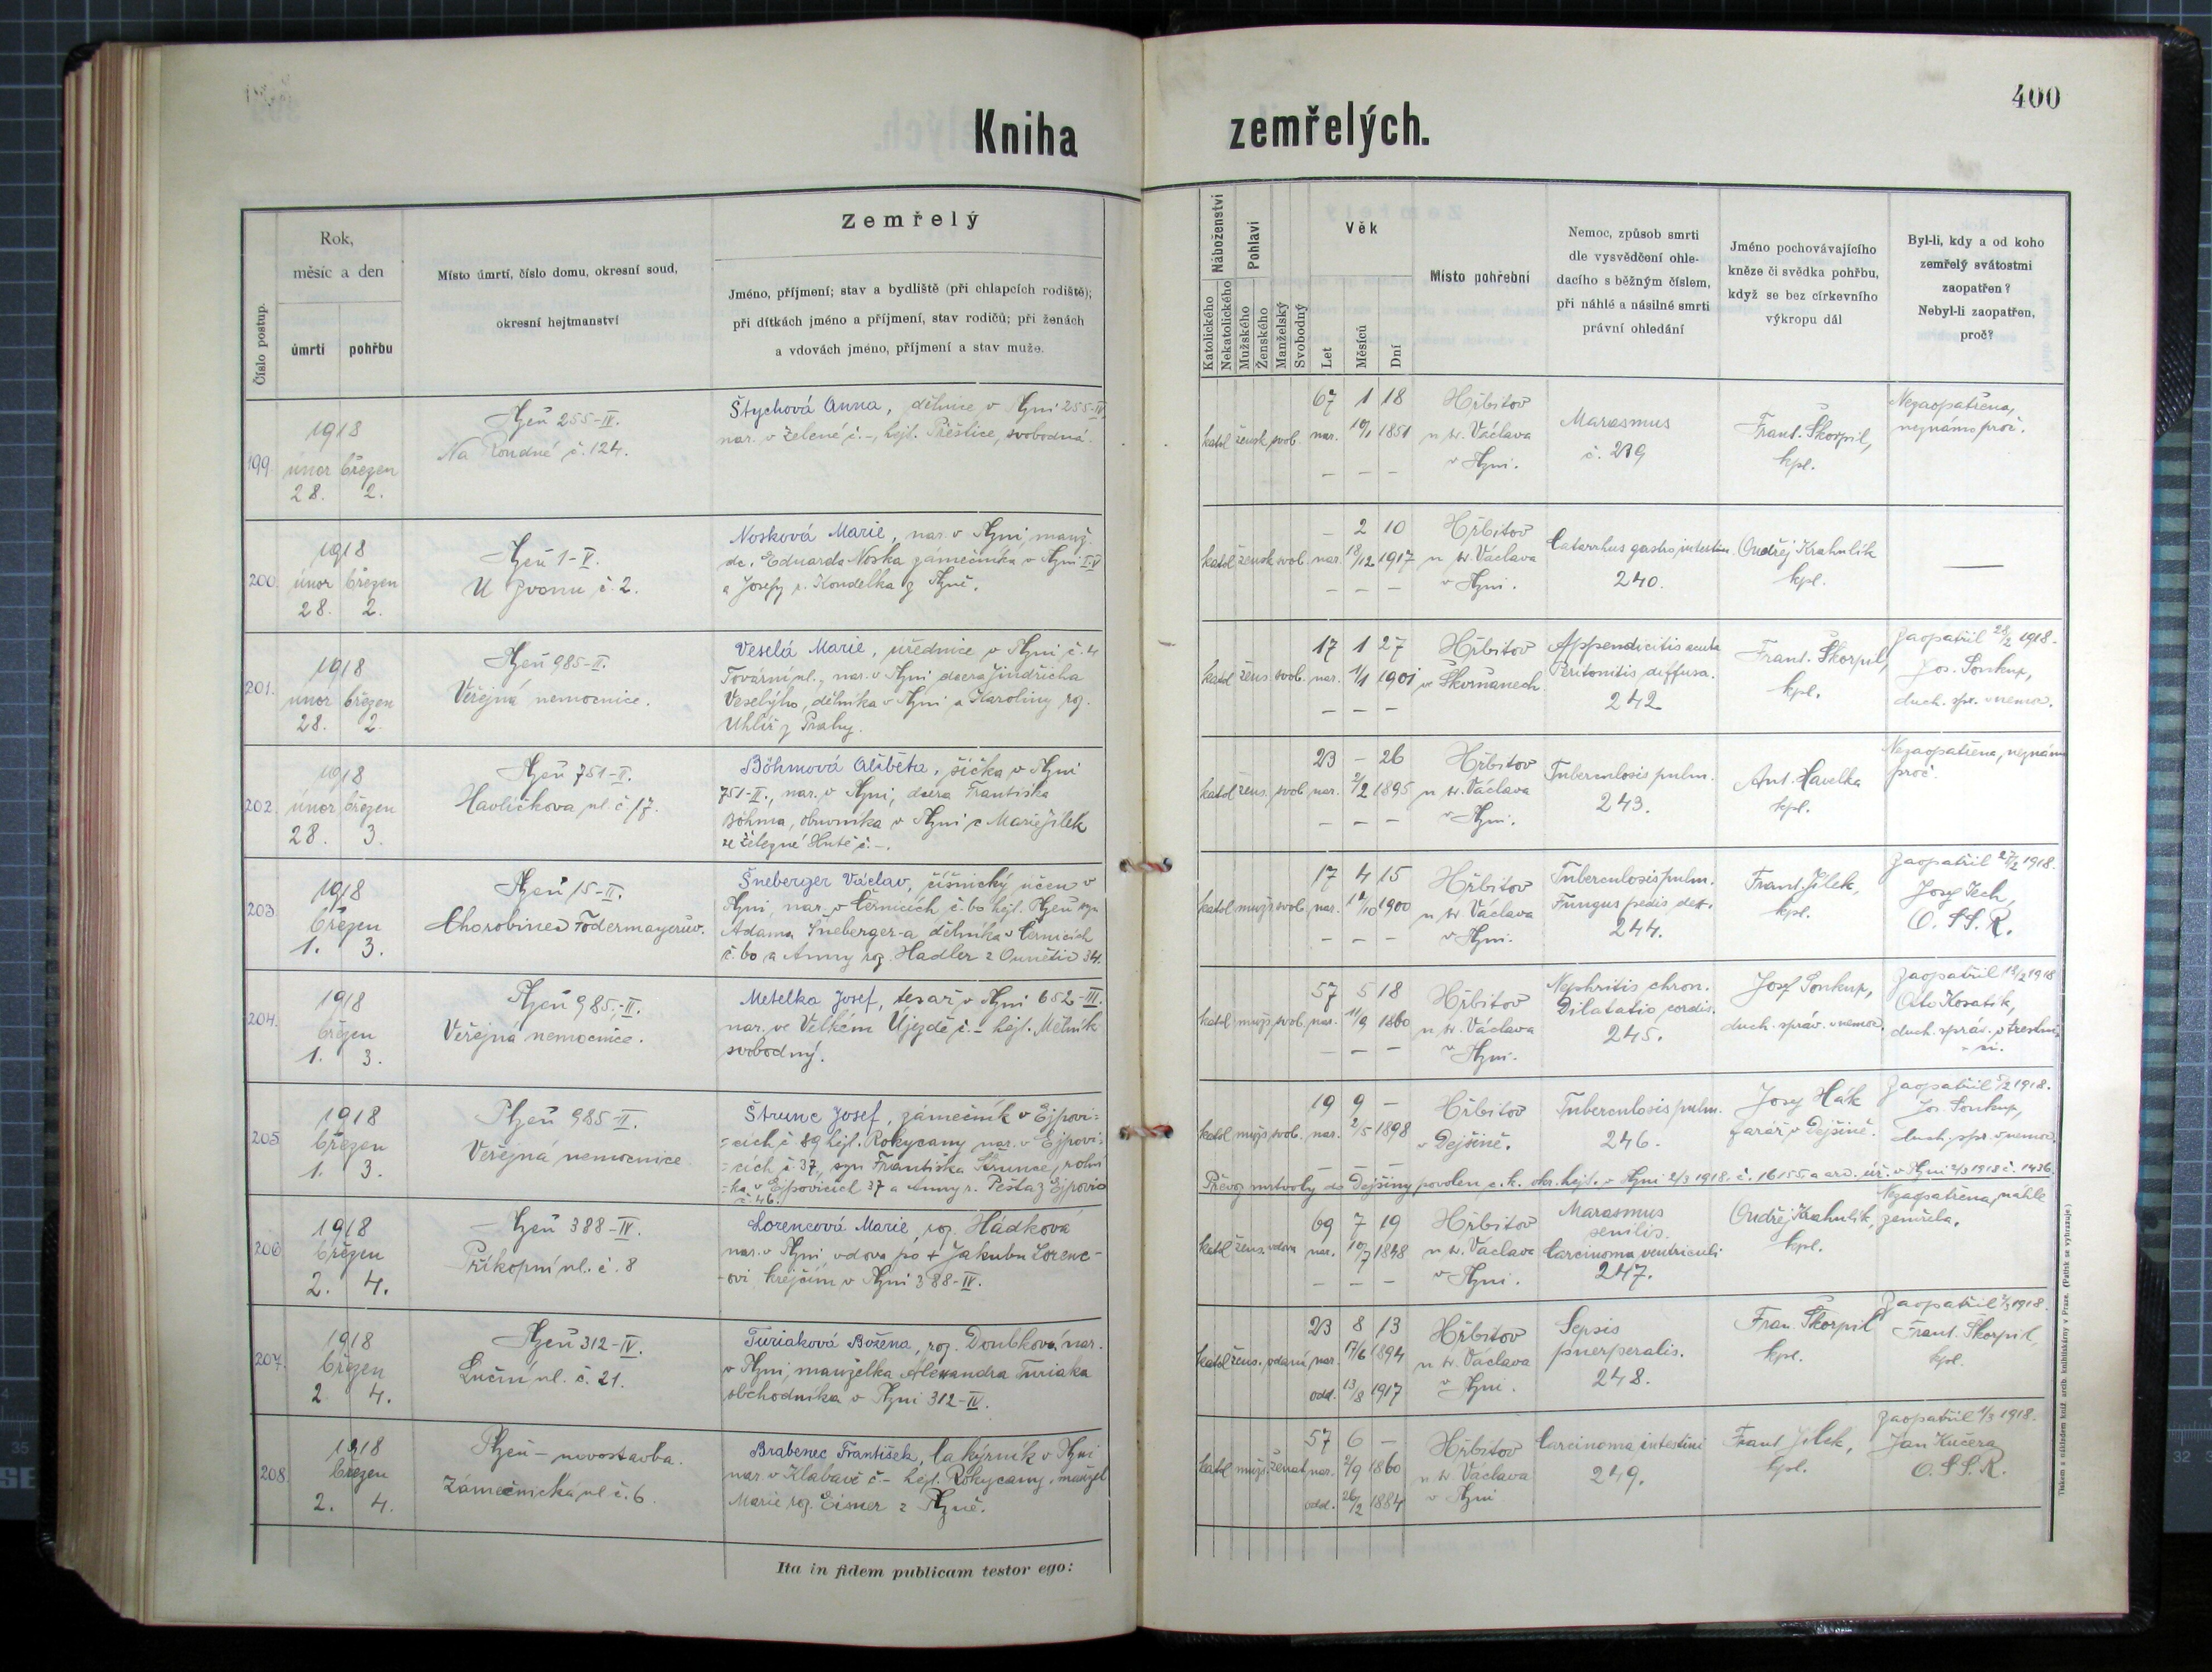 400
Kniha zemřelých.
Číslo postup.
Rok,
měsíc a den
úmrtí
pohřbu
Místo úmrtí, číslo domu, okresní soud,
okresní hejtmanství
Zemřelý
Jméno, příjmení; stav a bydliště (při chlapcích rodiště);
při dítkách jméno a příjmení, stav rodičů; při ženách
a vdovách jméno, příjmení a stav muže.
Náboženství
Katolického
Nekatolického
Pohlaví
Mužského
Ženského
Manželský
Svobodný
Věk
Let
Měsíců
Dní
Místo pohřební
Nemoc, způsob smrti
dle vysvědčení ohle-
dacího s běžným číslem,
při náhlé a násilné smrti
právní ohledání
Jméno pochovávajícího
kněze či svědka pohřbu,
když se bez církevního
výkropu dál
Byl-li, kdy a od koho
zemřelý svátostmi
zaopatřen?
Nebyl-li zaopatřen,
proč?
199.
1918
únor březen
28. 2.
Plzeň 255-IV.
Na Roudné č. 124.
Štychová Anna, dělnice v Plzni 255-IV
nar. v Zelené č.-, hejt. Přeštice, svobodná.
katol žensk svob. nar.
67 1 18
10/1 1851
– – –
Hřbitov
u sv. Václava
v Plzni.
Marasmus
č. 239
Frant. Škorpil,
kpl.
Nezaopatřena,
neznámo proč.
200.
1918
únor březen
28. 2.
Plzeň 1-V.
U Zvonu č. 2.
Nosková Marie, nar. v Plzni, manž.
dc. Eduarda Noska zámečníka v Plzni I-V
a Josefy r. Koudelka z Plzně.
katol žensk svob. nar.
– 2 10
18/12 1917
– – –
Hřbitov
u sv. Václava
v Plzni.
Catarrhus gastrointestin.
240.
Ondřej Krahulík
kpl.
—
201.
1918
únor březen
28. 2.
Plzeň 985-II.
Veřejná nemocnice.
Veselá Marie, úřednice v Plzni č. 4
Tovární ul., nar. v Plzni dcera Jindřicha
Veselýho, dělníka v Plzni a Karoliny roz.
Uhlíř z Prahy.
katol žens. svob. nar.
17 1 27
1/1 1901
– – –
Hřbitov
ve Skvrňanech.
Appendicitis acuta
Peritonitis diffusa.
242
Frant. Škorpil,
kpl.
Zaopatřil 28/2 1918.
Jos. Soukup,
duch. spr. v nemoc.
202.
1918
únor březen
28. 3.
Plzeň 751-II.
Havlíčkova ul. č. 17.
Böhmová Alžběta, šička v Plzni
751-II., nar. v Plzni, dcera Františka
Böhma, obuvníka v Plzni a Marie Jílek
ze Železné Hutě č.-.
katol žens. svob. nar.
23 – 26
2/2 1895
– – –
Hřbitov
u sv. Václava
v Plzni.
Tuberculosis pulm.
243.
Ant. Havelka
kpl.
Nezaopatřena, neznámo
proč.
203.
1918
březen
1. 3.
Plzeň 15-II.
Chorobinec Födermayerův.
Šneberger Václav, číšnický učeň v
Plzni, nar. v Černicích, č. 60 hejt. Plzeň syn
Adama Šneberger-a dělníka v Černicích
č. 60 a Anny roz. Hadler z Ounětic 34.
katol mužs. svob. nar.
17 4 15
17/10 1900
– – –
Hřbitov
u sv. Václava
v Plzni.
Tuberculosis pulm.
Fungus pedis dex.
244.
Frant. Jílek,
kpl.
Zaopatřil 27/2 1918.
Josef Tech,
C. SS. R.
204.
1918
březen
1. 3.
Plzeň 985-II.
Veřejná nemocnice.
Metelka Josef, tesař v Plzni 652-III.
nar. ve Velkém Újezdě č.- hejt. Mělník
svobodný.
katol mužs. svob. nar.
57 5 18
11/9 1860
– – –
Hřbitov
u sv. Václava
v Plzni.
Nephritis chron.
Dilatatio cordis.
245.
Josef Soukup,
duch. správ. v nemoc.
Zaopatřil 18/2 1918
Oto Kosatík,
duch. správ. v trestni-
ci.
205
1918
březen
1. 3.
Plzeň 985-II.
Veřejná nemocnice
Štrunc Josef, zámečník v Ejpovi=
=cích č. 89 hejt. Rokycany nar. v Ejpovi=
=cích č. 37, syn Františka Štrunce, rolní
=ka v Ejpovicích 37 a Anny r. Pešta z Ejpovic
č. 46.
katol mužs. svob. nar.
19 9 –
2/5 1898
Hřbitov
v Dejšině.
Tuberculosis pulm.
246.
Josef Hák
farář v Dejšině.
Zaopatřil 5/2 1918.
Jos. Soukup,
duch. spr. v nemoc.
Převoz mrtvoly do Dejšiny povolen c. k. okr. hejt. v Plzni 2/3 1918. č. 16155 a arc. úř. v Plzni 2/3 1918 č. 1436.
206
1918
březen
2. 4.
Plzeň 388-IV.
Příkopní ul. č. 8
Lorencová Marie, roz. Hádková
nar. v Plzni vdova po + Jakubu Lorenc-
-ovi krejčím v Plzni 388-IV.
katol žens. vdova nar.
69 7 19
10/7 1848
– – –
Hřbitov
u sv. Václava
v Plzni.
Marasmus
senilis.
Carcinoma ventriculi
247.
Ondřej Krahulík,
kpl.
Nezaopatřena, náhle
zemřela.
207.
1918
březen
2 4.
Plzeň 312-IV.
Luční ul. č. 21.
Turiaková Božena, roz. Doubková nar.
v Plzni, manželka Alexandra Turiaka
obchodníka v Plzni 312-IV.
katol žens. vdaná nar.
23 8 13
17/6 1894
odd. 13/8 1917
Hřbitov
u sv. Václava
v Plzni.
Sepsis
puerperalis.
248.
Fran. Škorpil
kpl.
Zaopatřil 1/3 1918.
Frant. Škorpil,
kpl.
208
1918
březen
2. 4.
Plzeň – novostavba.
Zámečnická ul č. 6.
Brabenec František, lakýrník v Plzni
nar. v Klabavě č- hejt. Rokycany, manžel
Marie roz. Eisner z Plzně.
katol mužs. ženat nar.
57 6 –
2/9 1860
odd. 26/2 1884
Hřbitov
u sv. Václava
v Plzni
Carcinoma intestini
249.
Frant Jílek,
kpl.
Zaopatřil 1/3 1918.
Jan Kučera
C. SS. R.
Ita in fidem publicam testor ego:
Tiskem a nákladem kníž. arcib. knihtiskárny v Praze. (Patisk se vyhrazuje.)